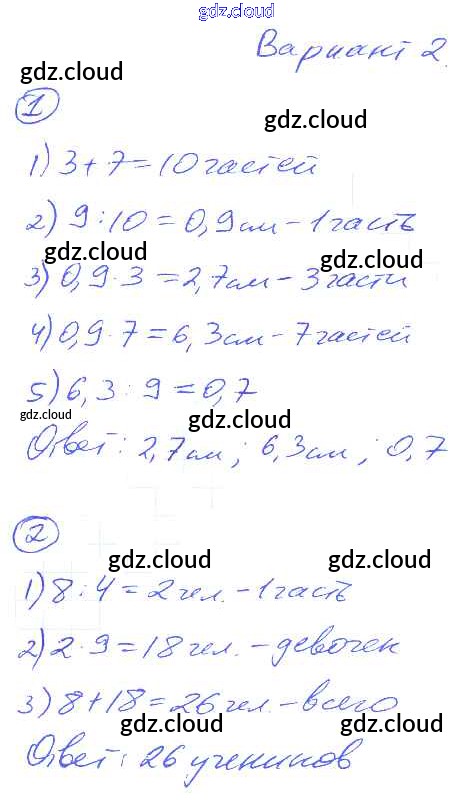 gdz.cloud
Вариант 2.
gdz.cloud
gdz.cloud
1
1) 3 + 7 = 10 частей
2) 9 : 10 = 0,9 см – 1 часть
gdz.cloud
gdz.cloud
3) 0,9 · 3 = 2,7 см – 3 части
4) 0,9 · 7 = 6,3 см – 7 частей
5) 6,3 : 9 = 0,7
gdz.cloud
gdz.cloud
Ответ: 2,7 см; 6,3 см; 0,7
2
gdz.cloud
gdz.cloud
1) 8 : 4 = 2 чел. – 1 часть
2) 2 · 9 = 18 чел. – девочек
3) 8 + 18 = 26 чел. – всего
gdz.cloud
gdz.cloud
Ответ: 26 учеников